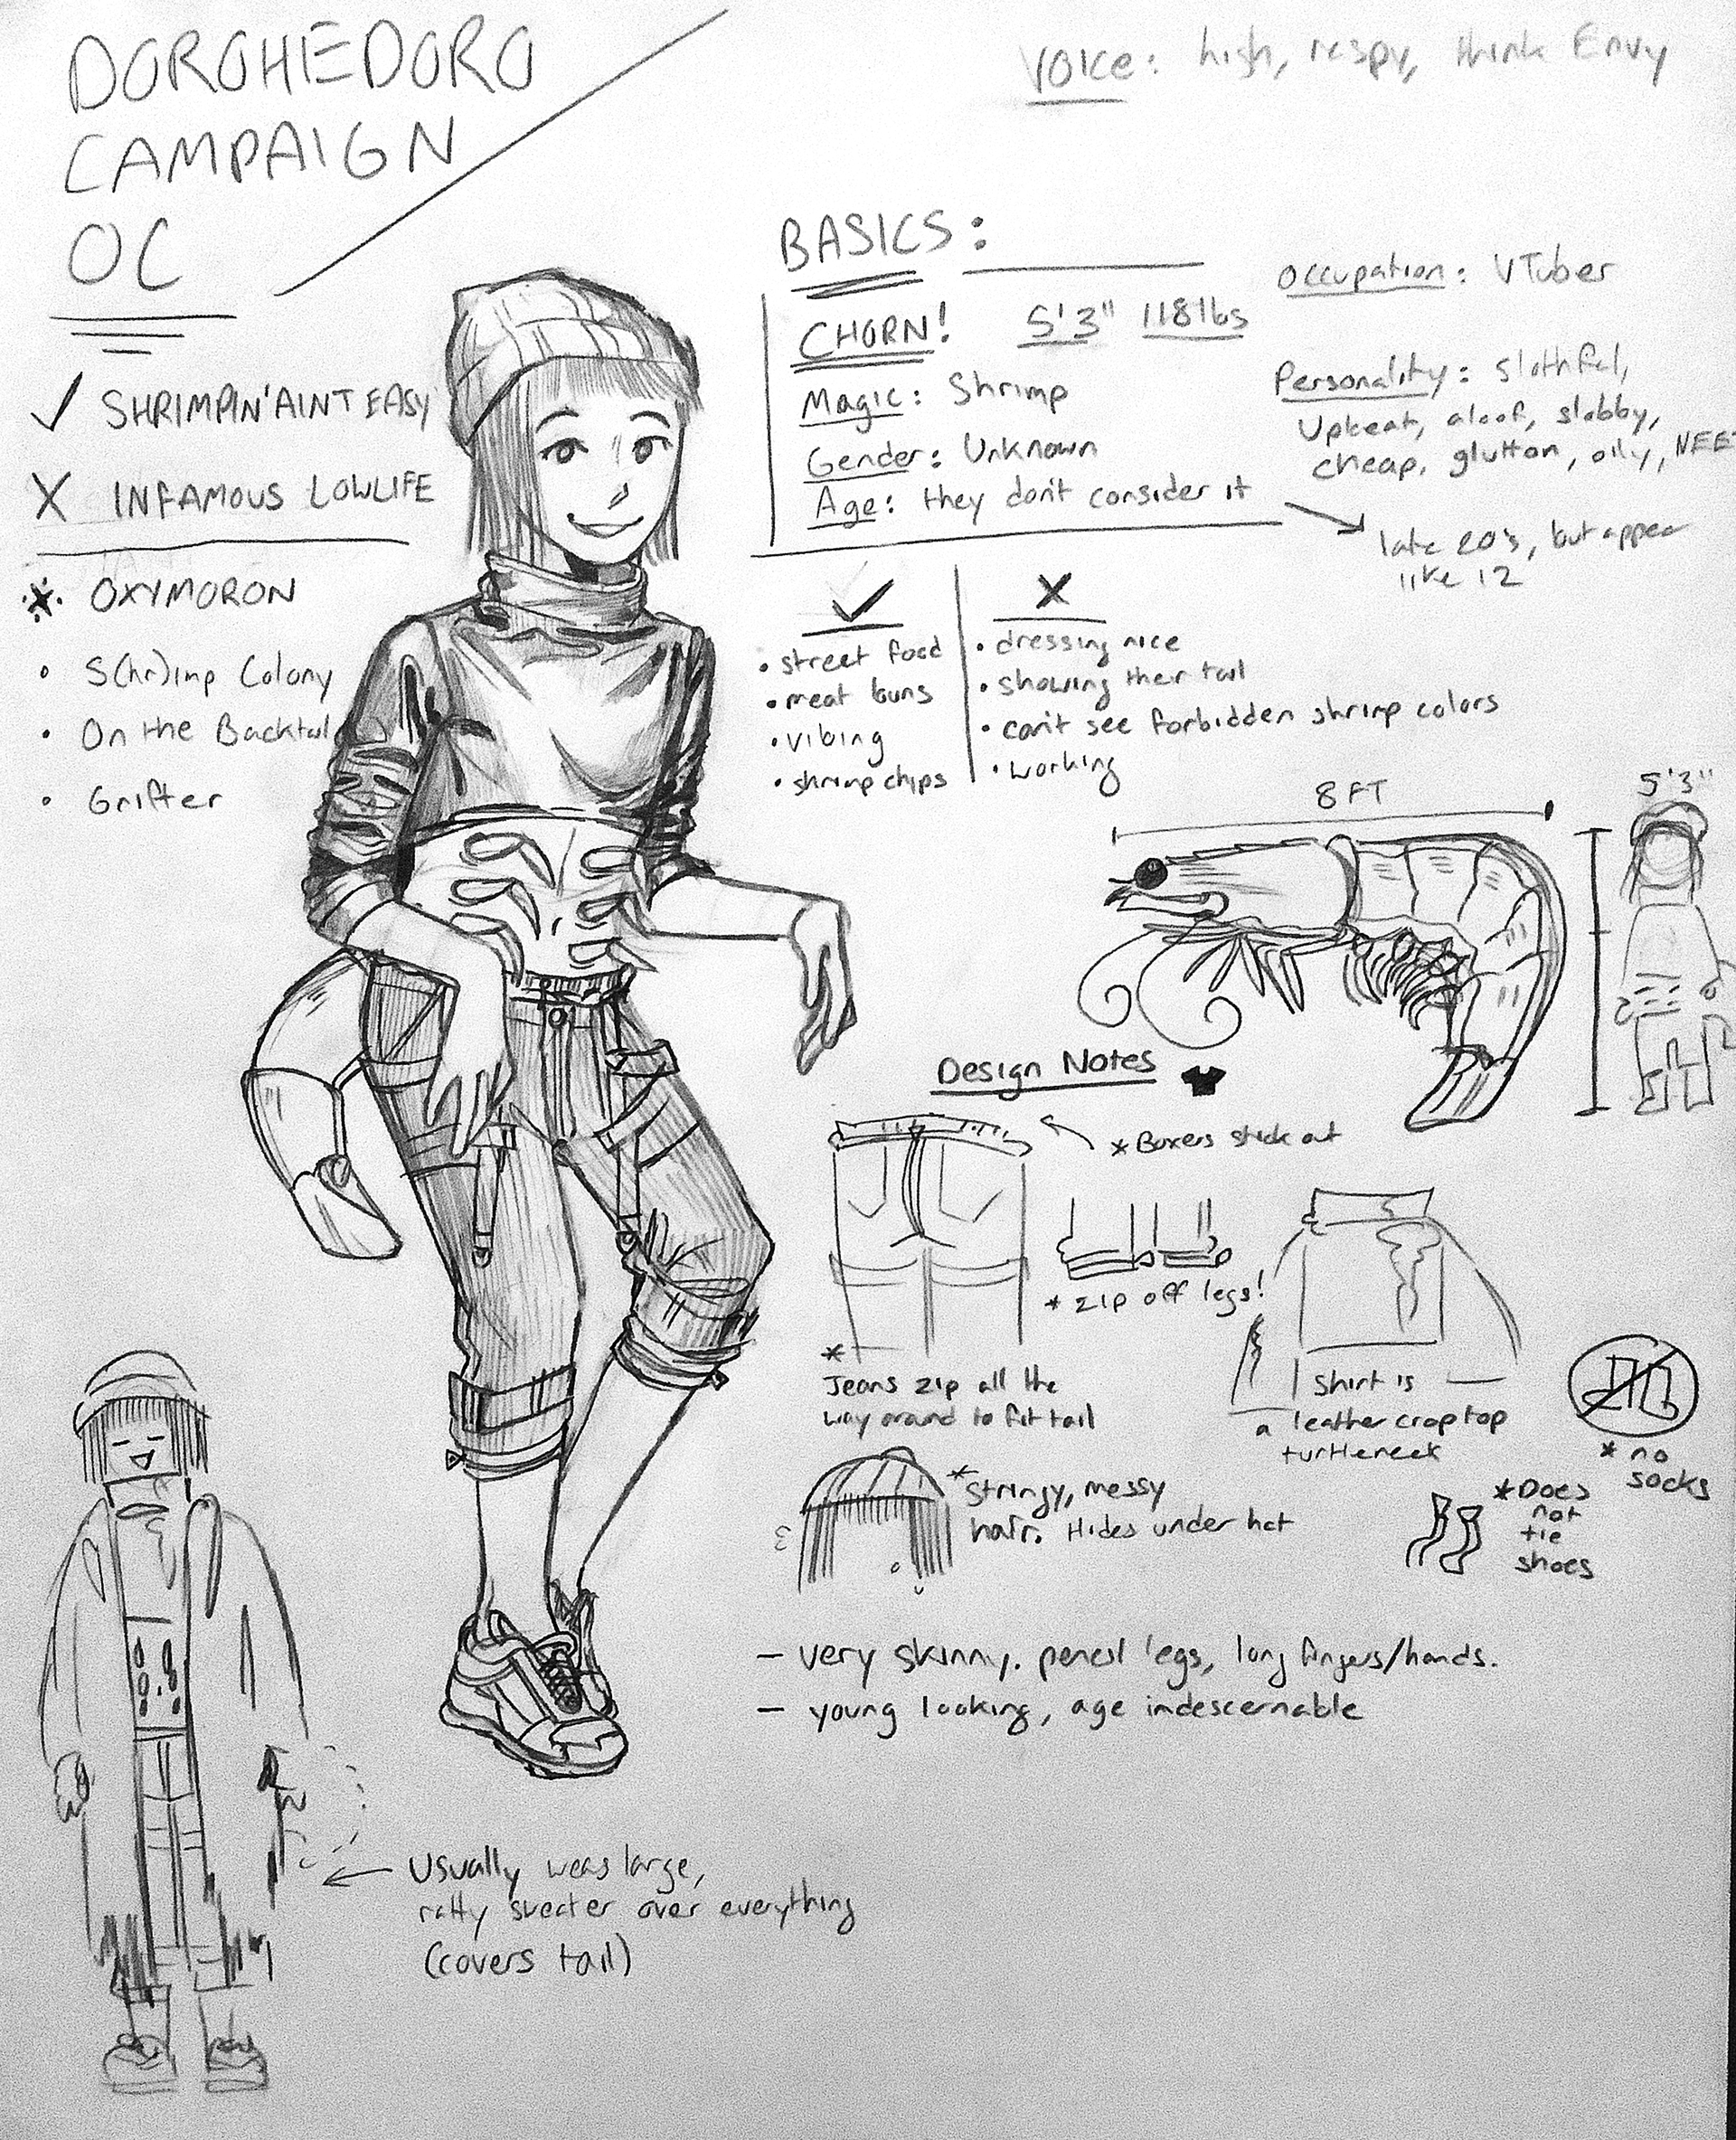 DOROHEDORO
CAMPAIGN
OC
Voice: high, raspy, think Envy
✓ SHRIMPIN' AINT EASY
X INFAMOUS LOWLIFE
* OXYMORON
• S(hr)imp Colony
• On the Backtail
• Grifter
BASICS:
CHORN! 5'3" 118lbs
Magic: Shrimp
Gender: Unknown
Age: they don't consider it
late 20's, but appear
like 12
Occupation: VTuber
Personality: Slothful,
Upbeat, aloof, slobby,
cheap, glutton, oily, NEET
✓
• street food
• meat buns
• vibing
• shrimp chips
X
• dressing nice
• showing their tail
• can't see forbidden shrimp colors
• working
8 FT
5'3"
Design Notes
* Boxers stick out
* zip off legs!
*
Jeans zip all the
way around to fit tail
Shirt is
a leather crop top
turtleneck
* no
socks
* Stringy, messy
hair. Hides under hat
* Does
not
tie
shoes
– very skinny. pencil legs, long fingers/hands.
– young looking, age indescernable
Usually wears large,
ratty sweater over everything
(covers tail)